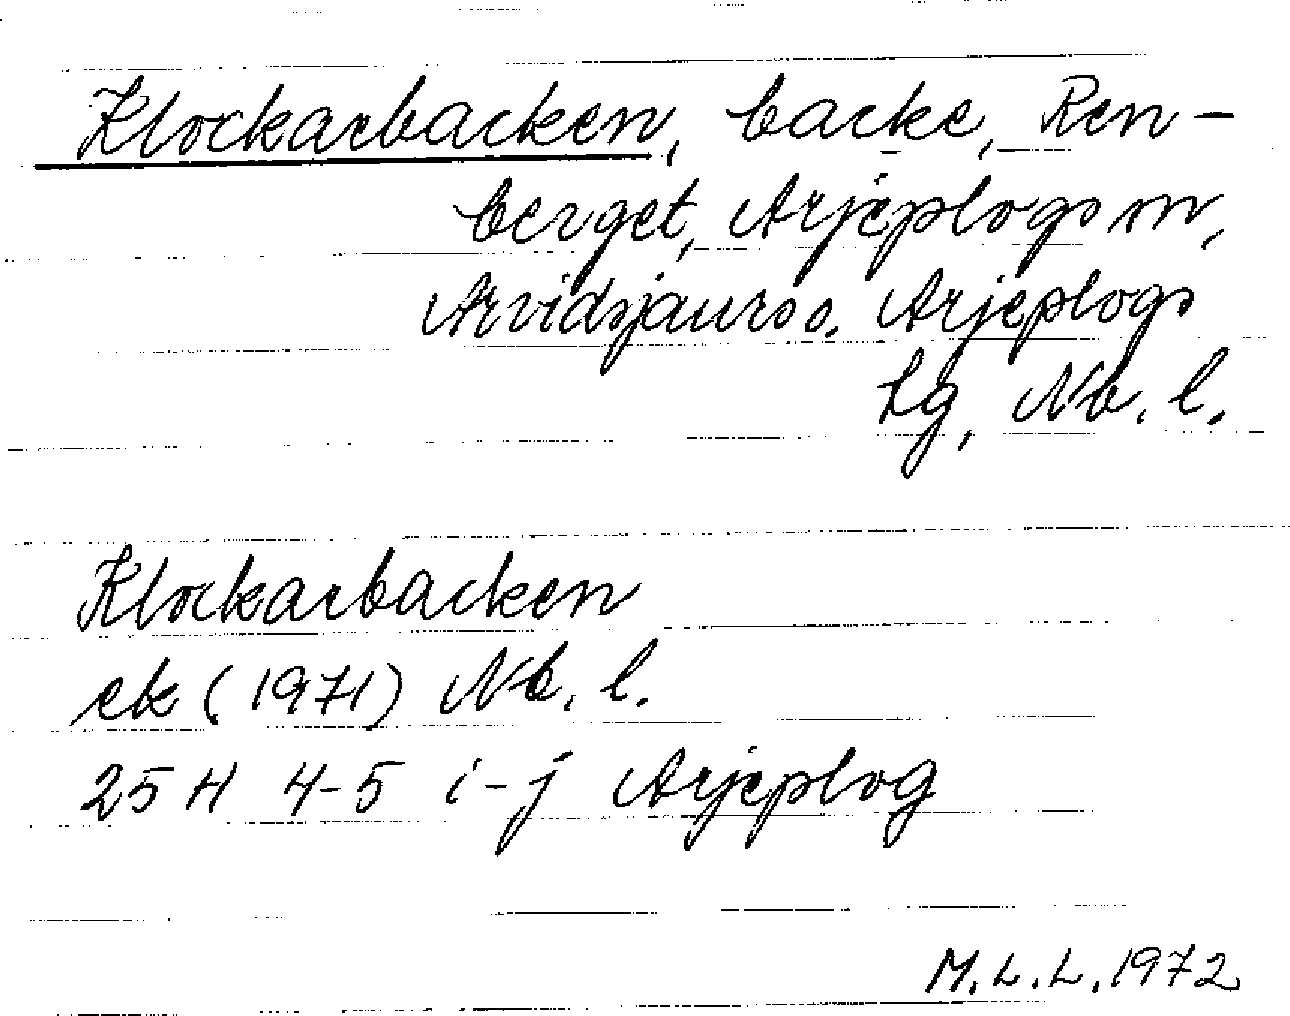 Klockarbacken, backe, Ren-
berget, Arjeplogs sn,
Arvidsjaurs o. Arjeplogs
lg, Nb. l.
Klockarbacken
ek (1971) Nb. l.
25 H 4-5 i-j Arjeplog
M.L.L. 1972